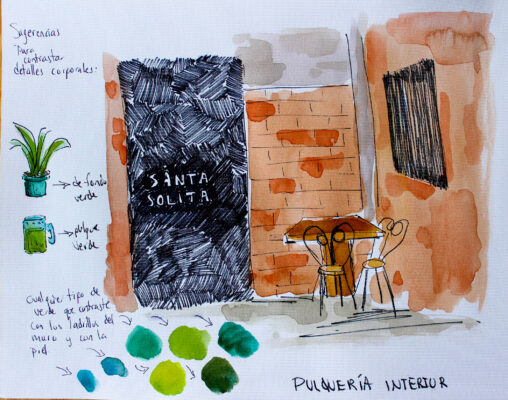 Sugerencias
para
contrastar
detalles corporales:
SANTA
SOLITA.
de fondo
verde
pulque
verde
Cualquier tipo de
verde que contraste
con los ladrillos del
muro y con la
piel
PULQUERÍA INTERIOR